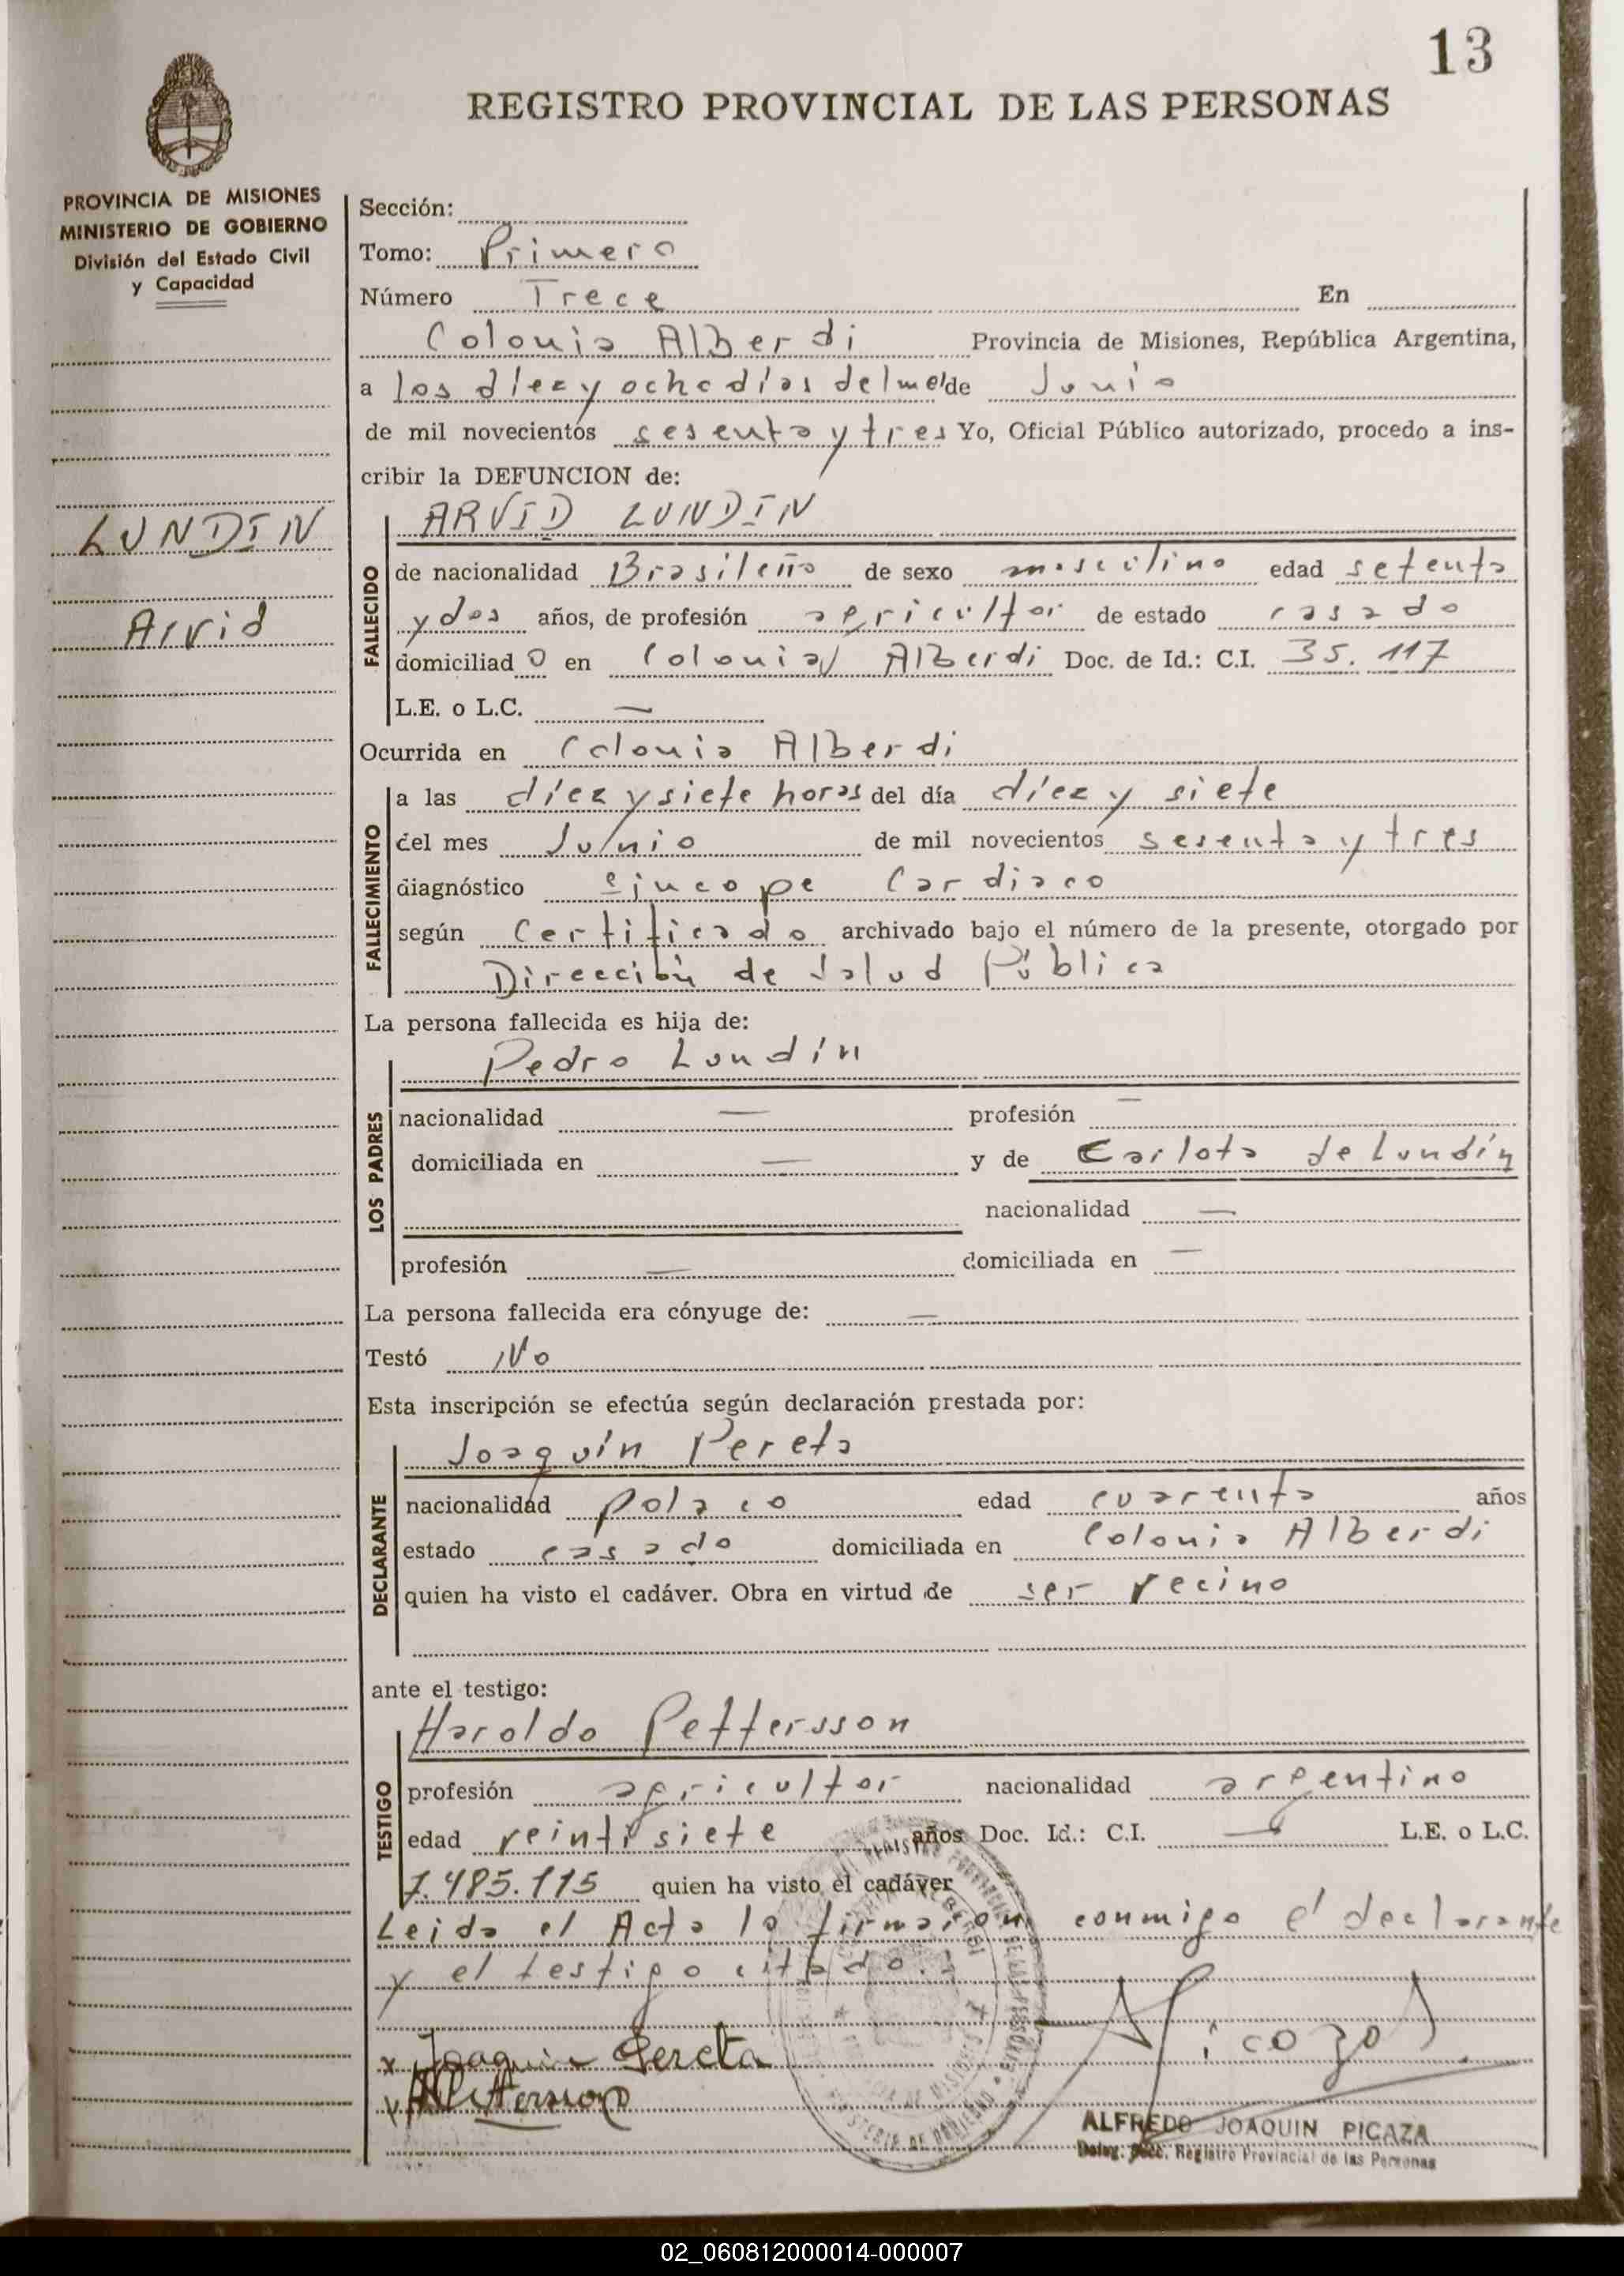 13
REGISTRO PROVINCIAL DE LAS PERSONAS
PROVINCIA DE MISIONES
MINISTERIO DE GOBIERNO
División del Estado Civil
y Capacidad
LUNDIN
Arvid
Sección:
Tomo: Primero
Número Trece En
Colonia Alberdi Provincia de Misiones, República Argentina,
a los diez y ocho días del mes de Junio
de mil novecientos sesenta y tres Yo, Oficial Público autorizado, procedo a ins-
cribir la DEFUNCION de:
ARVID LUNDIN
FALLECIDO
de nacionalidad Brasileño de sexo masculino edad setenta
y dos años, de profesión agricultor de estado casado
domiciliad o en Colonia Alberdi Doc. de Id.: C.I. 35.117
L.E. o L.C. —
Ocurrida en Colonia Alberdi
FALLECIMIENTO
a las diez y siete horas del día diez y siete
del mes Junio de mil novecientos sesenta y tres
diagnóstico Sincope Cardiaco
según Certificado archivado bajo el número de la presente, otorgado por
Dirección de Salud Pública
La persona fallecida es hija de:
LOS PADRES
Pedro Lundín
nacionalidad — profesión —
domiciliada en — y de Carlota de Lundín
nacionalidad —
profesión — domiciliada en —
La persona fallecida era cónyuge de: —
Testó No
Esta inscripción se efectúa según declaración prestada por:
DECLARANTE
Joaquín Pereta
nacionalidad polaco edad cuarenta años
estado casado domiciliada en Colonia Alberdi
quien ha visto el cadáver. Obra en virtud de ser vecino
ante el testigo:
TESTIGO
Haroldo Pettersson
profesión agricultor nacionalidad argentino
edad veintisiete años Doc. Id.: C.I. — L.E. o L.C.
7.485.115 quien ha visto el cadáver
Leida el Acta la firmaron conmigo el declarante
y el testigo citado.
x Joaquin Gereta
ALFREDO JOAQUIN PICAZA
Deleg. Secc. Registro Provincial de las Personas
02_060812000014-000007